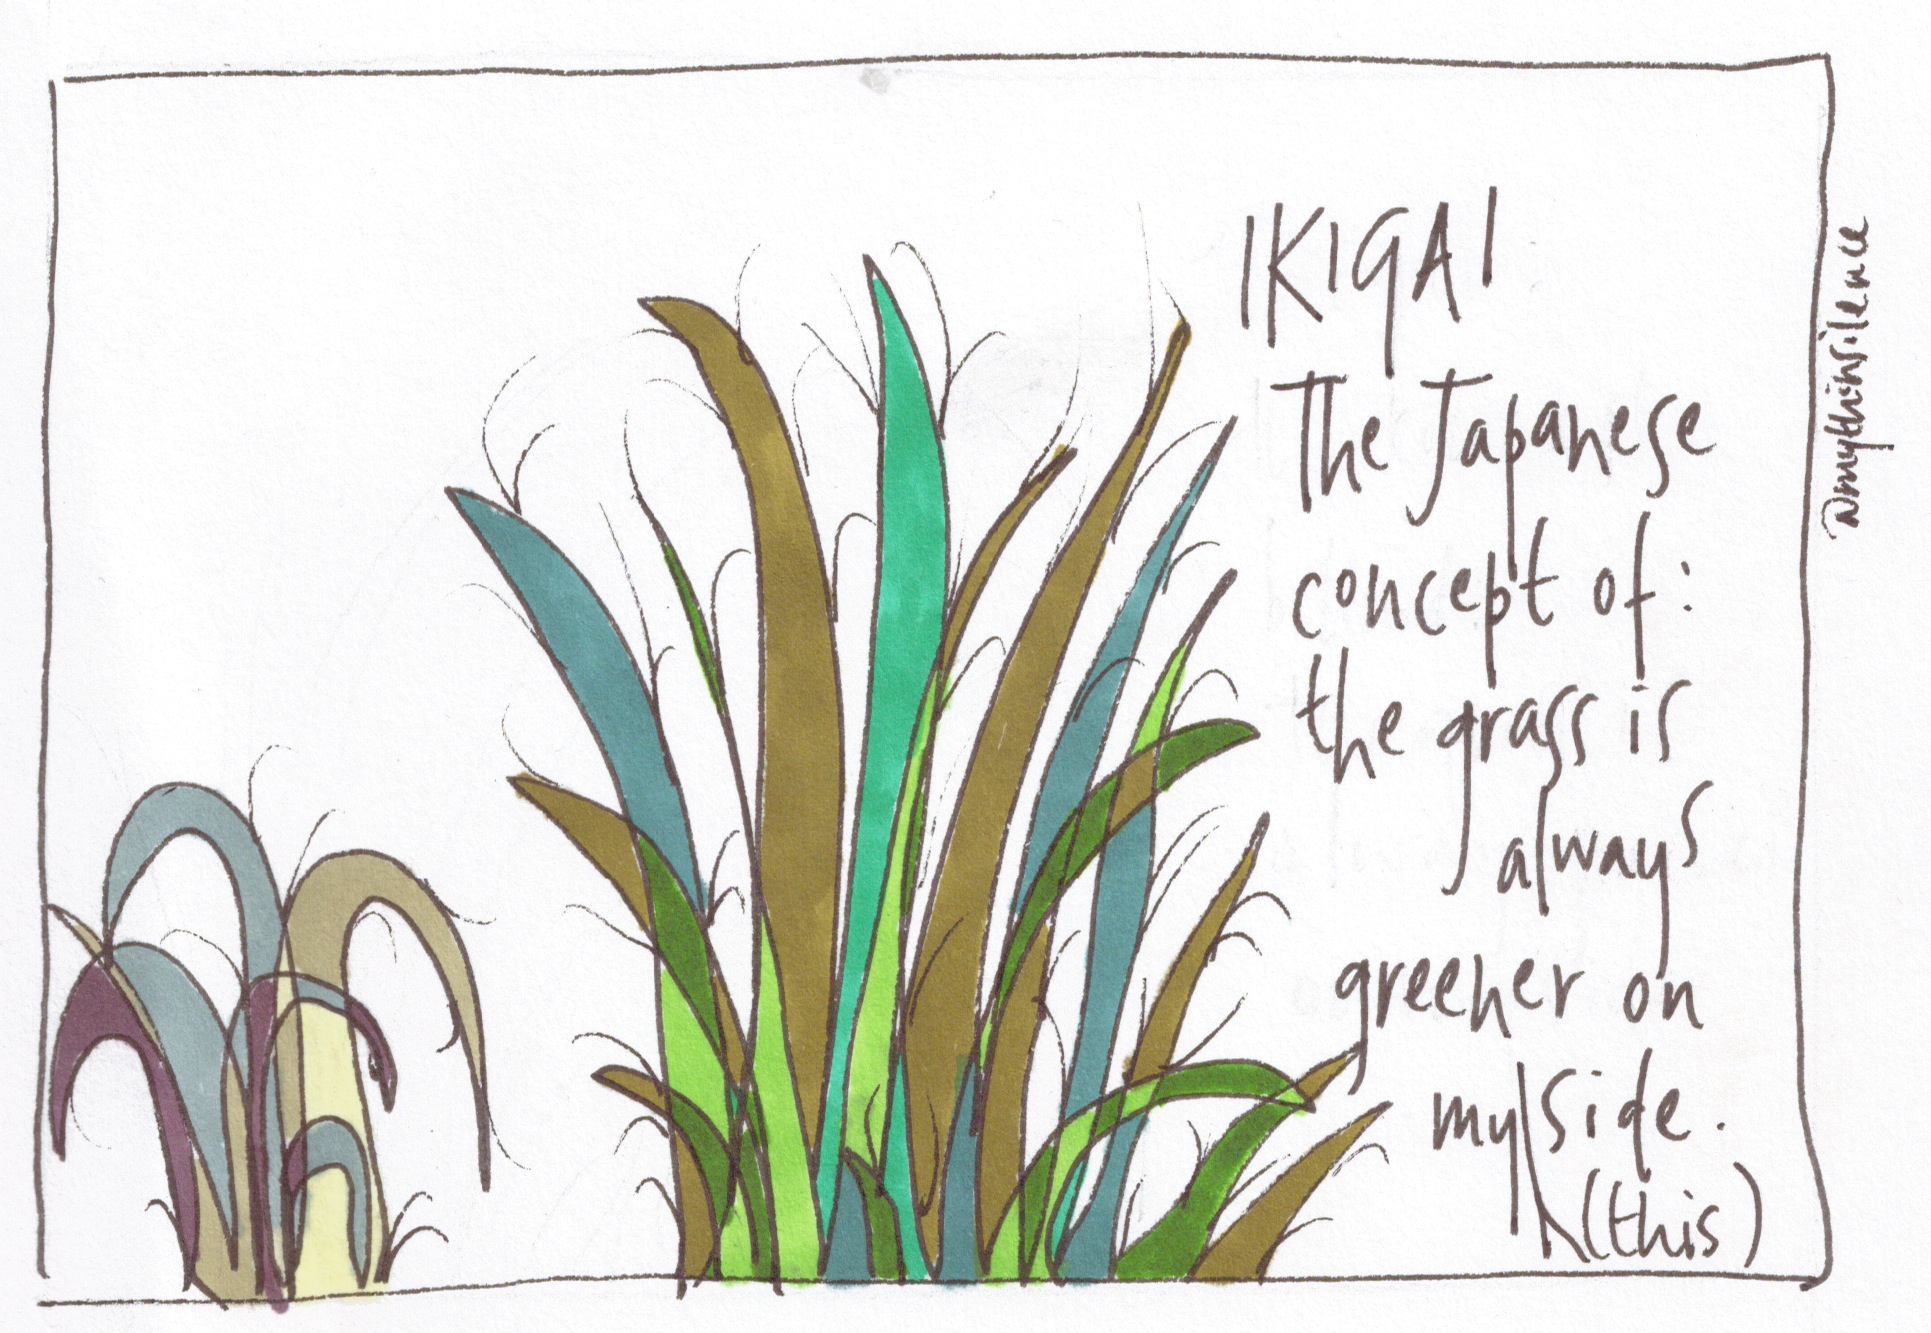 IKIGAI
The Japanese
concept of:
the grass is
always
greener on
my side.
(this)
@mythinsilence